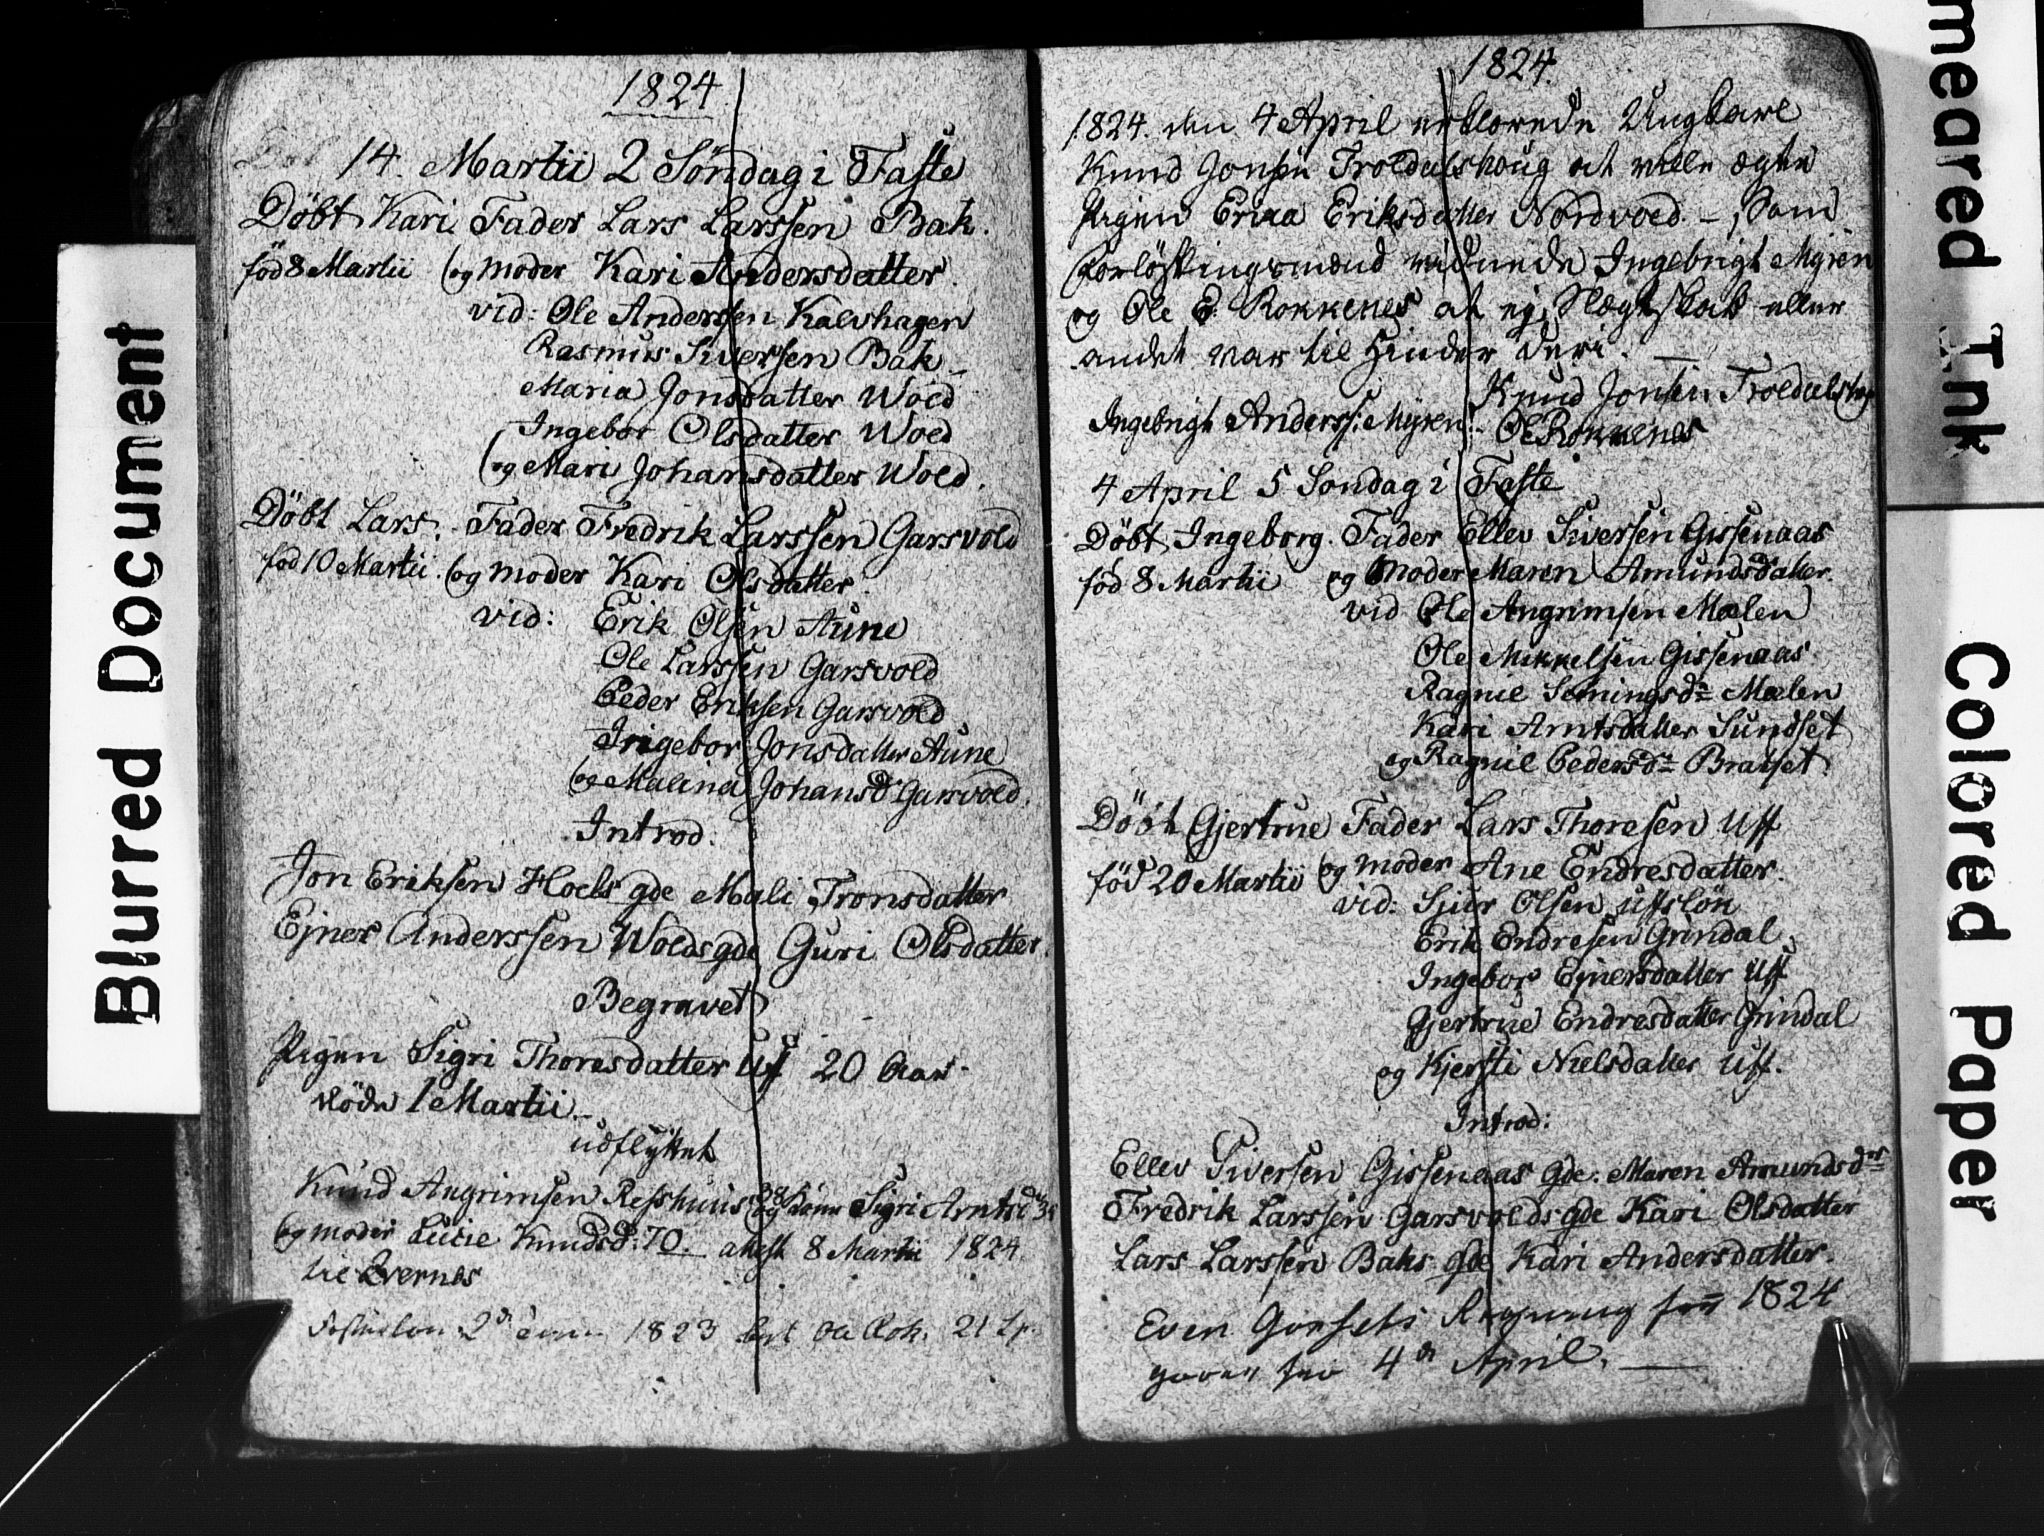 1824
14. Martii 2 Söndag i Faste
Döbt Kari Fader Lars Larssen Bak.
föd 8 Martii og moder Kari Andersdatter.
vid: Ole Anderssen Kalvhagen
Rasmus Siversen Bak
Maria Jonsdatter Wold
Ingebor Olsdatter Wold
og Mari Johansdatter Wold.
Döbt Lars. Fader Fredrik Larssen Garsvold
föd 10 Martii. og moder Kari Olsdatter.
vid: Erik Olsen Aune
Ole Larssen Garsvold
Peder Eriksen Garsvold
Ingebor Jonsdatter Aune
og Malina Johansd Garsvold.
Introd.
Jon Eriksen Hoels gde Mali Tronsdatter
Ejner Anderssen Wolds gde Guri Olsdatter.
Begravet
Pigen Sigri Thoresdatter Uff 20 Aar
döde 1 Martii.
udflyttet
Knud Angrimsen Resshuus 38 Kone Sigri Arntsd
og moder Lucie Knudsd: 70. attest 8 Martii 1824
til Qvernes
2d 1823 21
1824
1824. den 4 April erklærede Ungkarl
Knud Jonsen Troldalshoug at ville ægte
Pigen Eriksdatter Nordvold. – Som
Forlöftningsmænd vidnede Ingebrigt Myren
og Ole E: Rokkenes at ej Slægtskab eller
andet var til Hinder deri.
Knud Jonsen Troldalshoug
Ingebrigt Anderss: Myren. Ol Rokkenes
4 April 5 Sondag i Faste
Döbt Ingeborg. Fader Ellev Siversen Gissenaas
föd 8 Martii og Moder Maren Amundsdatter.
vid Ole Angrimsen Mælen
Ole Mikkelsen Gissenaas
Ragnil Semingsdr Mælen
Kari Arntsdatter Sundset
og Ragnil Pedersdr Bratset.
Döbt Gjertrue Fader Lars Thoresen Uff
föd 20 Martii og moder Ane Endresdatter.
vid: Siver Olsen
Erik Endresen Grindal
Ingebor Ejnersdatter Uff
Gjertrue Endresdatter Grindal
og Kjersti Nielsdatter Uff.
Introd:
Ellev Siversen Gissenaas gde: Maren Amundsdtr
Fredrik Larssen Garsvolds gde Kari Olsdatter
Lars Larssen Baks gde Kari Andersdatter.
Even Gorsets Regnung 1824
4de April.
Blurred Document
meared Ink
Colored Paper